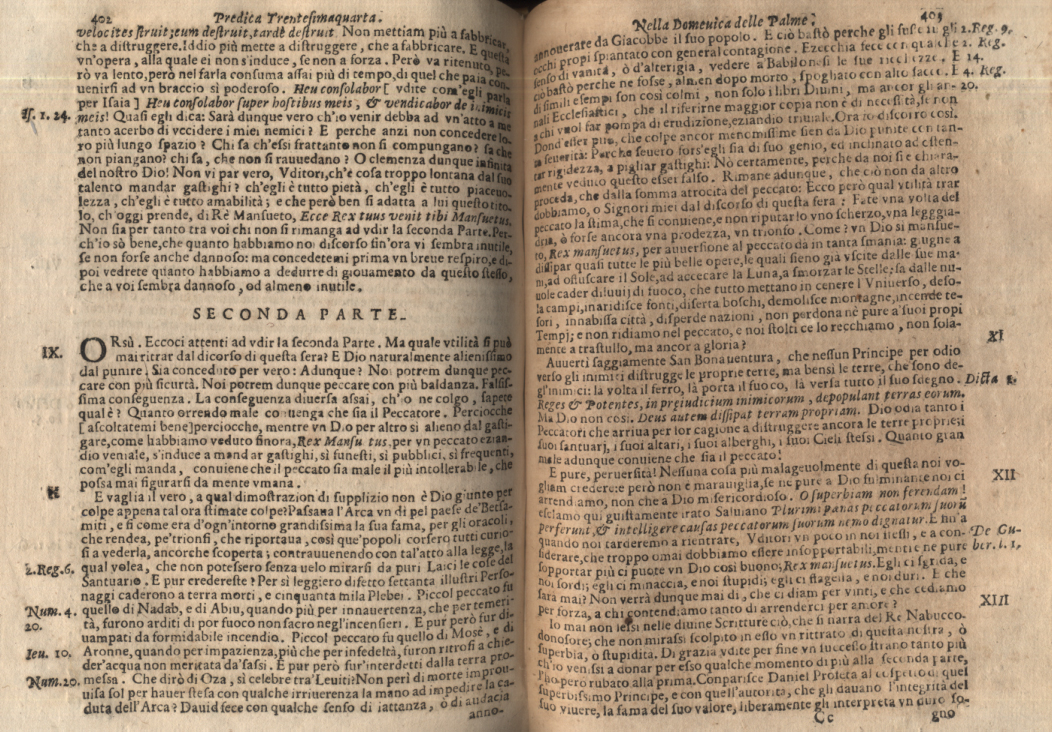 402 Predica Trentesimaquarta.
velocites struit; eum destruit, tardè destruit. Non mettiam più a fabbricar,
che a distruggere. Iddio più mette a distruggere, che a fabbricare. E questa
vn'opera, alla quale ei non s'induce, se non a forza. Però va ritenuto, pe-
rò va lento, però nel farla consuma assai più di tempo, di quel che paia con-
uenirsi ad vn braccio sì poderoso. Heu consolabor [ vdite com'egli parla
per Isaia ] Heu consolabor super hostibus meis, & vendicabor de inimicis
Is. 1. 24. meis! Quasi egli dica: Sarà dunque vero ch'io venir debba ad vn'atto a me
tanto acerbo di vccidere i miei nemici? E perche anzi non concedere lo-
ro più lungo spazio? Chi sa ch'essi frattanto non si compungano? sa che
non piangano? chi sa, che non si rauuedano? O clemenza dunque infinita
del nostro Dio! Non vi par vero, Vditori, ch'è cosa troppo lontana dal suo
talento mandar gastighi? ch'egli è tutto pietà, ch'egli è tutto piaceuo-
lezza, ch'egli è tutto amabilità; e che però ben si adatta a lui questo tito-
lo, ch'oggi prende, di Rè Mansueto, Ecce Rex tuus venit tibi Mansuetus.
Non sia per tanto tra voi chi non si rimanga ad vdir la seconda Parte. Per-
ch'io sò bene, che quanto habbiamo noi discorso fin'ora vi sembra inutile,
se non forse anche dannoso: ma concedetemi prima vn breue respiro, e di-
poi vedrete quanto habbiamo a dedurre di giouamento da questo stesso,
che a voi sembra dannoso, od almeno inutile.
SECONDA PARTE.
IX. ORsù. Eccoci attenti ad vdir la seconda Parte. Ma quale vtilità si può
mai ritrar dal dicorso di questa sera? E Dio naturalmente alienissimo
dal punire. Sia conceduto per vero: Adunque? Noi potrem dunque pec-
care con più sicurtà. Noi potrem dunque peccare con più baldanza. Falsis-
sima conseguenza. La conseguenza diuersa assai, ch'io ne colgo, sapete
qual è? Quanto orrendo male conuenga che sia il Peccatore. Perciocche
[ ascoltatemi bene ] perciocche, mentre vn Dio per altro sì alieno dal gasti-
gare, come habbiamo veduto finora, Rex Mansuetus, per vn peccato ezian-
dio veniale, s'induce a mandar gastighi, sì funesti, sì pubblici, sì frequenti,
com'egli manda, conuiene che il peccato sia male il più intollerabile, che
possa mai figurarsi da mente vmana.
X E vaglia il vero, a qual dimostrazion di supplizio non è Dio giunto per
colpe appena talora stimate colpe? Passaua l'Arca vn dì pel paese de' Betsa-
miti, e si come era d'ogn'intorno grandissima la sua fama, per gli oracoli,
che rendea, pe' trionfi, che riportaua, così que' popoli corsero tutti curio-
si a vederla, ancorche scoperta; contrauuenendo con tal'atto alla legge, la
2. Reg. 6. qual volea, che non potessero senza velo mirarsi da puri Laici le cose del
Santuario. E pur credereste? Per sì leggiero difetto settanta illustri Perso-
naggi caderono a terra morti, e cinquanta mila Plebei. Piccol peccato fu
Num. 4. quello di Nadab, e di Abiu, quando più per innauertenza, che per temeri-
20. tà, furono arditi di por fuoco non sacro negl'incensieri. E pur però fur di-
uampati da formidabile incendio. Piccol peccato fu quello di Mosè, e di
Leu. 10. Aronne, quando per impazienza, più che per infedeltà, furon ritrosi a chie-
der'acqua non meritata da' sassi. E pur però fur'interdetti dalla terra pro-
Num. 20. messa. Che dirò di Oza, sì celebre tra' Leuiti? Non perì di morte improu-
uisa sol per hauer stesa con qualche irriuerenza la mano ad impedire la ca-
duta dell'Arca? Dauid fece con qualche senso di iattanza, o di audacia
anno-
Nella Domenica delle Palme. 403
annouerare da Giacobbe il suo popolo. E ciò bastò perche gli fusse
occhi propi spiantato con general contagione. Ezecchia fece con qualche 2. Reg.
senso di vanità, ò d'alterigia, vedere a' Babilonesi le sue ricchezze. E 14.
ciò bastò perche ne fosse, almen dopo morto, spogliato con alto sacco. E 4. Reg.
di simili esempi son così colmi, non solo i libri Diuini, ma ancor gli an- 20.
nali Ecclesiastici, che il riferirne maggior copia non è di necessità, se non
a chi vuol far pompa di erudizione, eziandio triuiale. Ora io discorro così.
Dond'esser può, che colpe ancor menomissime sien da Dio punite con tan-
ta seuerità? Perche seuero fors'egli sia di suo genio, ed inclinato ad osten-
tar rigidezza, a pigliar gastighi: Nò certamente, perche da noi si è chiara-
mente veduto questo esser falso. Rimane adunque, che ciò non da altro
proceda, che dalla somma atrocità del peccato: Ecco però qual vtilità trar
dobbiamo, o Signori miei dal discorso di questa sera? Fate vna volta del
peccato la stima, che si conuiene, e non riputarlo vno scherzo, vna leggia-
dria, ò forse ancora vna prodezza, vn trionfo. Come? vn Dio sì mansue-
to, Rex mansuetus, per auuersione al peccato dà in tanta smania: giugne a
dissipar quasi tutte le più belle opere, le quali sieno già vscite dalle sue ma-
ni, ad offuscare il Sole, ad accecare la Luna, a smorzar le Stelle; fa dalle nu-
uole cader diluuij di fuoco, che tutto mettano in cenere l'Vniuerso, deso-
la campi, inaridisce fonti, diserta boschi, demolisce montagne, incende te-
sori, innabissa città, disperde nazioni, non perdona nè pure a' suoi propi
Tempj; e noi ridiamo nel peccato, e noi stolti ce lo recchiamo, non sola-
mente a trastullo, ma ancor a gloria?
XI Auuerti saggiamente San Bonauentura, che nessun Principe per odio
verso gli inimici distrugge le proprie terre, ma bensì le terre, che sono de-
gl'inimici: là volta il ferro, là porta il fuoco, là versa tutto il suo sdegno. Dicta
Reges & Potentes, in præiudictum inimicorum, depopulant terras eorum.
Ma Dio non così. Deus autem dissipat terram propriam. Dio odia tanto i
Peccatori che arriua per lor cagione a distruggere ancora le terre propriesi
suoi santuarj, i suoi altari, i suoi alberghi, i suoi Cieli stessi. Quanto gran
male adunque conuiene che sia il peccato!
XII E pure, peruersità! Nessuna cosa più malageuolmente di questa noi vo-
gliam credere: però non è marauiglia, se nè pure a Dio fulminante noi ci
arrendiamo, non che a Dio misericordioso. O superbiam non ferendam!
esclamo qui giustamente irato Saluiano Plurimi pœnas peccatorum suorũ
perferunt, & intelligere causas peccatorum suorum nemo dignatur. E fin'a
quando noi tarderemo a rientrare, Vditori vn poco in noi stessi, e a con- De Gu-
siderare, che troppo omai dobbiamo essere insopportabili, mentre nè pure ber. l. 1,
sopportar più ci puote vn Dio così buono; Rex mansuetus. Egli ci sgrida, e
noi sordi; egli ci minaccia, e noi stupidi; egli ci flagella, e noi duri. E che
sarà mai? Non verrà dunque mai dì, che ci diam per vinti, e che cediamo
per forza, a chi contendiamo tanto di arrenderci per amore?
XIII Io mai non lessi nelle diuine Scritture ciò, che si narra del Re Nabucco-
donosore; che non mirassi scolpito in esso vn ritratto di questa nostra, ò
superbia, o stupidità. Di grazia vdite per fine vn successo strano tanto più
ch'io venissi a donar per esso qualche momento di più alla seconda parte,
l'ho pero rubato alla prima. Comparisce Daniel Profeta al cospetto di quel
superbissimo Principe, e con quell'autorità, che gli dauano l'integrità del
suo viuere, la fama del suo valore, liberamente gli interpreta vn duro so-
Cc gno